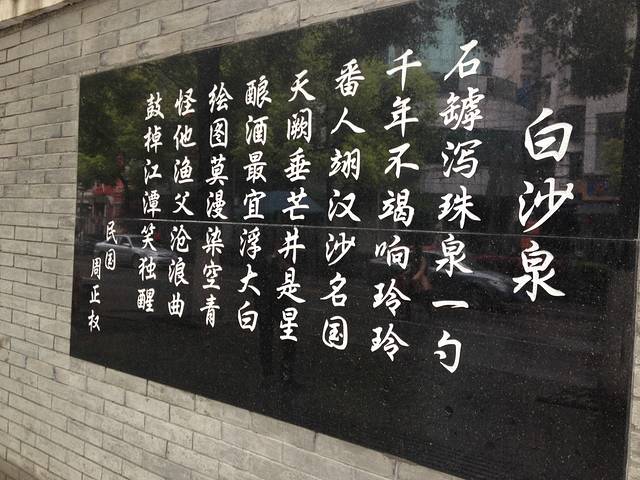 白沙泉
石罅泻珠泉一勺
千年不竭响玲玲
番人翊汉沙名国
天阙垂芒井是星
酿酒最宜浮大白
绘图莫漫染空青
怪他渔父沧浪曲
鼓掉江潭笑独醒
民国
周正权